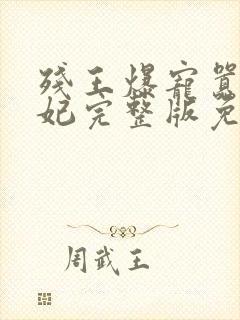 残王爆宠嚣
妃完整版免
周武王